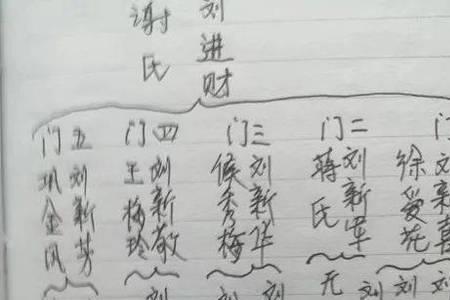 刘进财
谢氏
门
徐爱花
二门
刘新军
蒋氏
无
三门
刘新华
候秀梅
四门
刘新敬
王梅玲
五门
刘新芳
巩金凤
刘
刘
刘
刘
刘